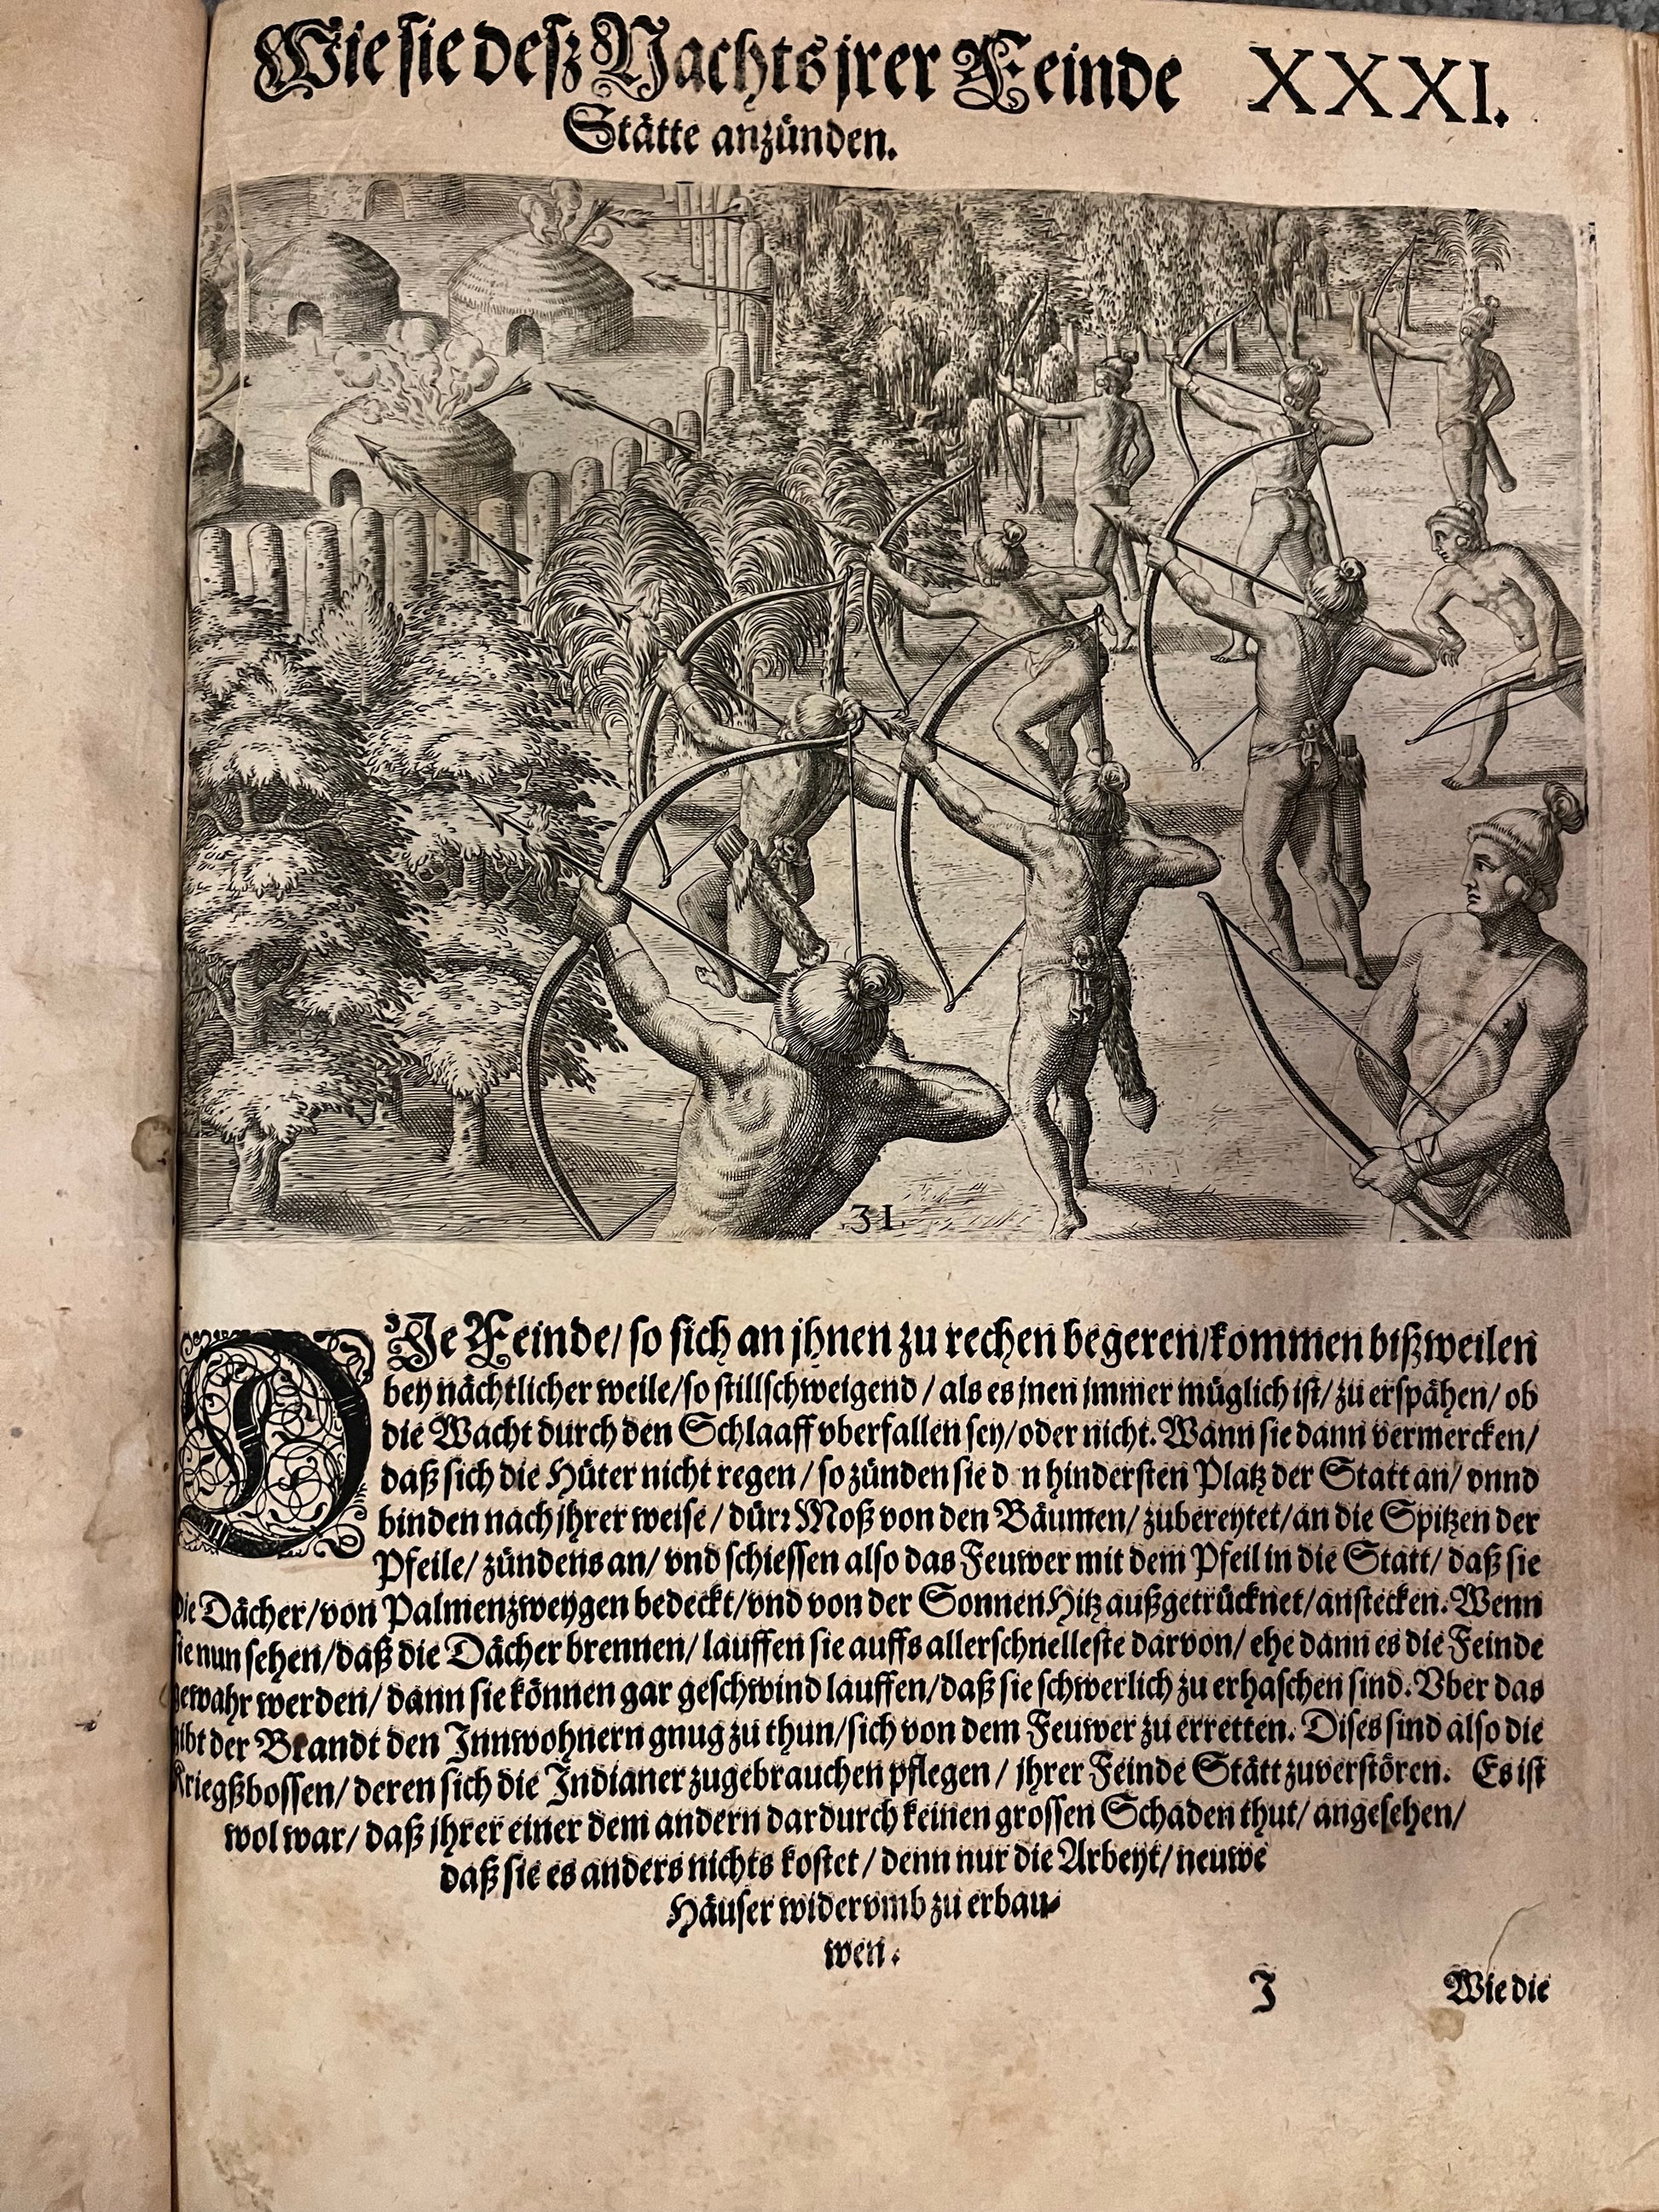 Wie sie desz Nachts jrer Feinde XXXI.
Stätte anzünden.
31
DIe Feinde/ so sich an jhnen zu rechen begeren/kommen bißweilen
bey nächtlicher weile/so stillschweigend / als es jnen jmmer müglich ist/ zu erspähen/ ob
die Wacht durch den Schlaaff vberfallen sey/oder nicht. Wann sie dann vermercken/
daß sich die Hüter nicht regen / so zünden sie d n hindersten Platz der Statt an/ vnnd
binden nach jhrer weise / dürr Moß von den Bäumen/ zubereytet/an die Spitzen der
Pfeile/ zündens an/ vnd schiessen also das Feuwer mit dem Pfeil in die Statt/ daß sie
die Dächer/von Palmenzweygen bedeckt/vnd von der Sonnen Hitz außgetrücknet/anstecken. Wenn
sie nun sehen/daß die Dächer brennen/ lauffen sie auffs allerschnelleste darvon/ ehe dann es die Feinde
gewahr werden/ dann sie können gar geschwind lauffen/daß sie schwerlich zu erhaschen sind. Vber das
gibt der Brandt den Innwohnern gnug zu thun/sich von dem Feuwer zu erretten. Dises sind also die
Kriegßbossen/ deren sich die Indianer zugebrauchen pflegen / jhrer Feinde Stätt zuverstören. Es ist
wol war/ daß jhrer einer dem andern dardurch keinen grossen Schaden thut/ angesehen/
daß sie es anders nichts kostet / denn nur die Arbeyt/ neuwe
Häuser widervmb zu erbau⸗
wen.
J Wie die